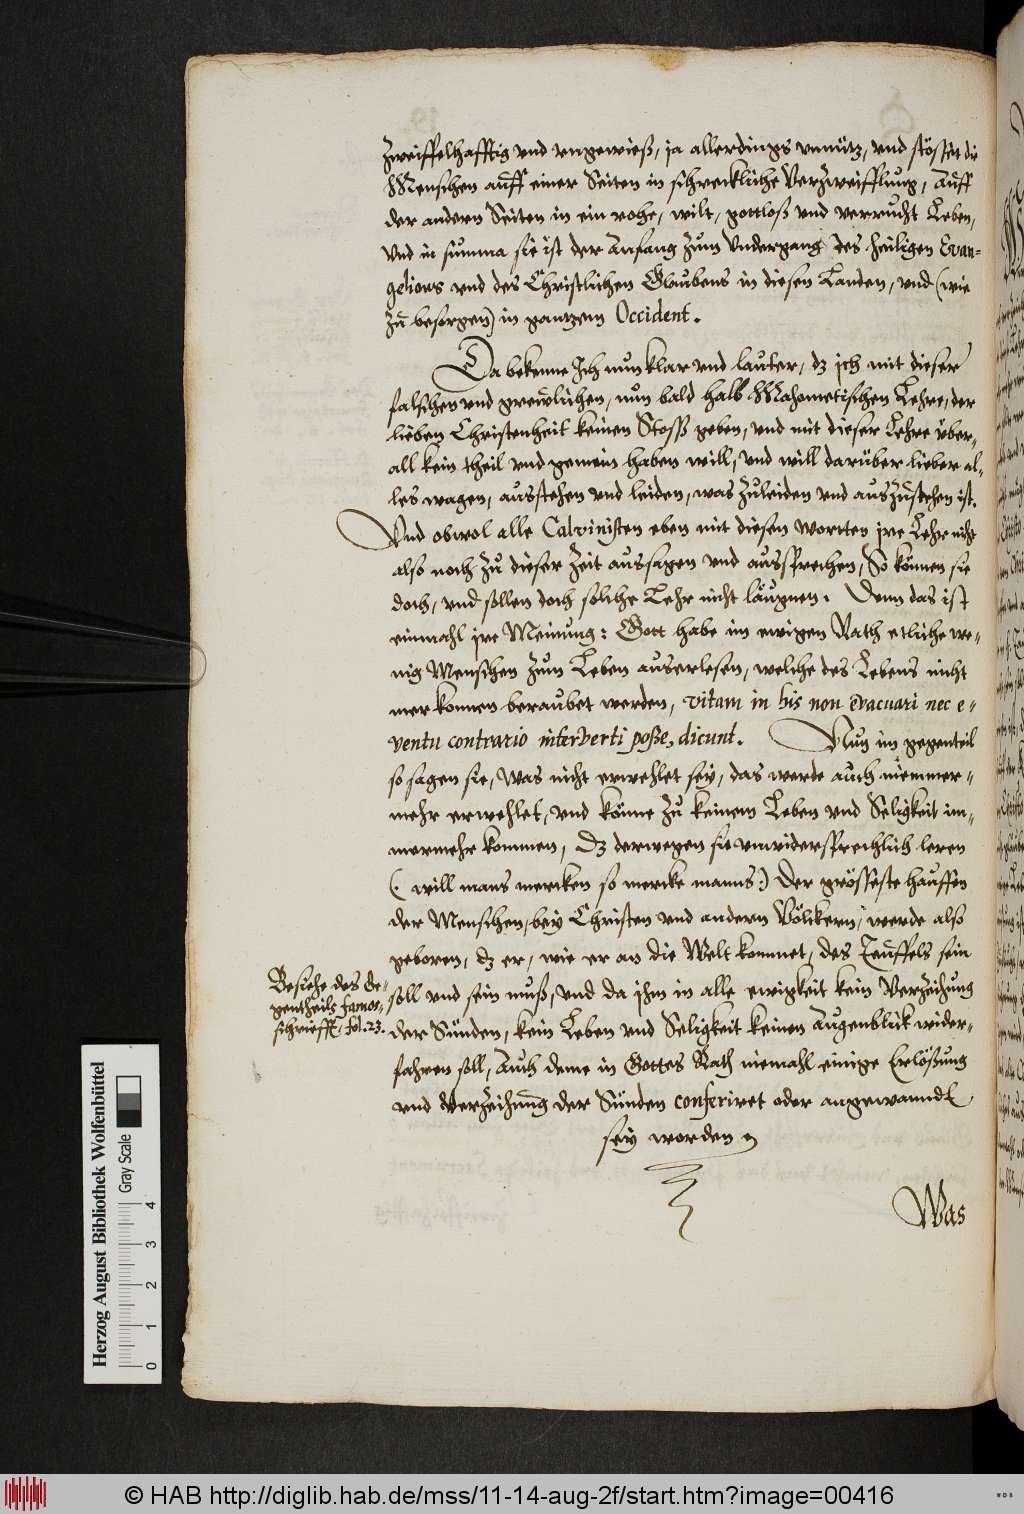 zweiffelhafftig vnd vngewieß, ja allerdings vnnütz, vnd stösset die
Menschen auff einer Seiten in schreckliche Verzweifflung, Auff
der andern Seiten in ein rohe, wilt, gottloß vnd verrucht Leben,
Vnd in summa sie ist der Anfang zum Vndergang des heiligen Evan-
gelions vnd des Christlichen Glaubens in diesen Landen, vnd (wie
zu besorgen) in gantzem Occident.
Da bekenne Ich nun klar vnd lauter, dz ich mit dieser
falschen vnd grewlichen, nun bald halb Mahometischen Lehre, der
lieben Christenheit keinen Stoss geben, vnd mit dieser Lehre über-
all kein theil vnd gemein haben will, vnd will darüber lieber al-
les wagen, ausstehen vnd leiden, was zuleiden vnd auszustehen ist.
Vnd obwol alle Calvinisten eben mit diesen wortten jre Lehr nicht
also noch zu dieser Zeit aussagen vnd aussprechen, So können sie
doch, vnd sollen doch solche Lehr nicht läugnen. Denn das ist
einmahl jre Meinung: Gott habe im ewigen Rath etliche we-
nig Menschen zum Leben auserlesen, welche des Lebens nicht
mer konnen beraubet werden, vitam in his non evacuari nec e-
ventu contrario interverti poße, dicunt. Nun im gegenteil
so sagen sie, Was nicht erwehlet sey, das werde auch niemmer-
mehr erwehlet, vnd könne zu keinem Leben vnd Seligkeit im-
mermehr kommen, Dz derwegen sie vnwidersprechlich leren
(: will mans mercken so mercke manns:) Der grösseste hauffen
der Menschen, bey Christen vnd andern Völckern, werde also
geboren, dz er, wie er an die Welt kommet, des Teuffels sein
Besiehe des Ge-
gentheils famos-
schriefft, fol. 23.
soll vnd sein muß, vnd da ihm in alle ewigkeit kein Verzeihung
der Sünden, kein Leben vnd Seligkeit keinen Augenblick wider-
fahren soll, Auch deme in Gottes Rath niemahl einige Erlößung
vnd Verzeihung der Sünden conferiret oder angewanndt
sey worden
Was
Herzog August Bibliothek Wolfenbüttel
Gray Scale
0 1 2 3 4
© HAB http://diglib.hab.de/mss/11-14-aug-2f/start.htm?image=00416